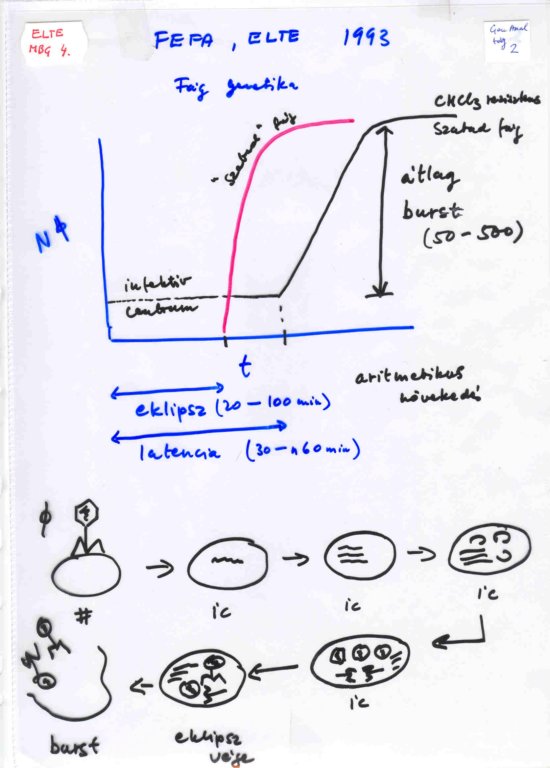 ELTE
MBG 4.
FEFA, ELTE 1993
2
Fág genetika
CHCl3 rezisztens
szabad fág
"szabad" fág
átlag
burst
(50-500)
Nϕ
infektív
centrum
t
aritmetikus
növekedés
eklipsz (20-100 min)
latencia (30-n60 min)
ϕ
#
ic
ic
ic
ic
eklipsz
vége
burst